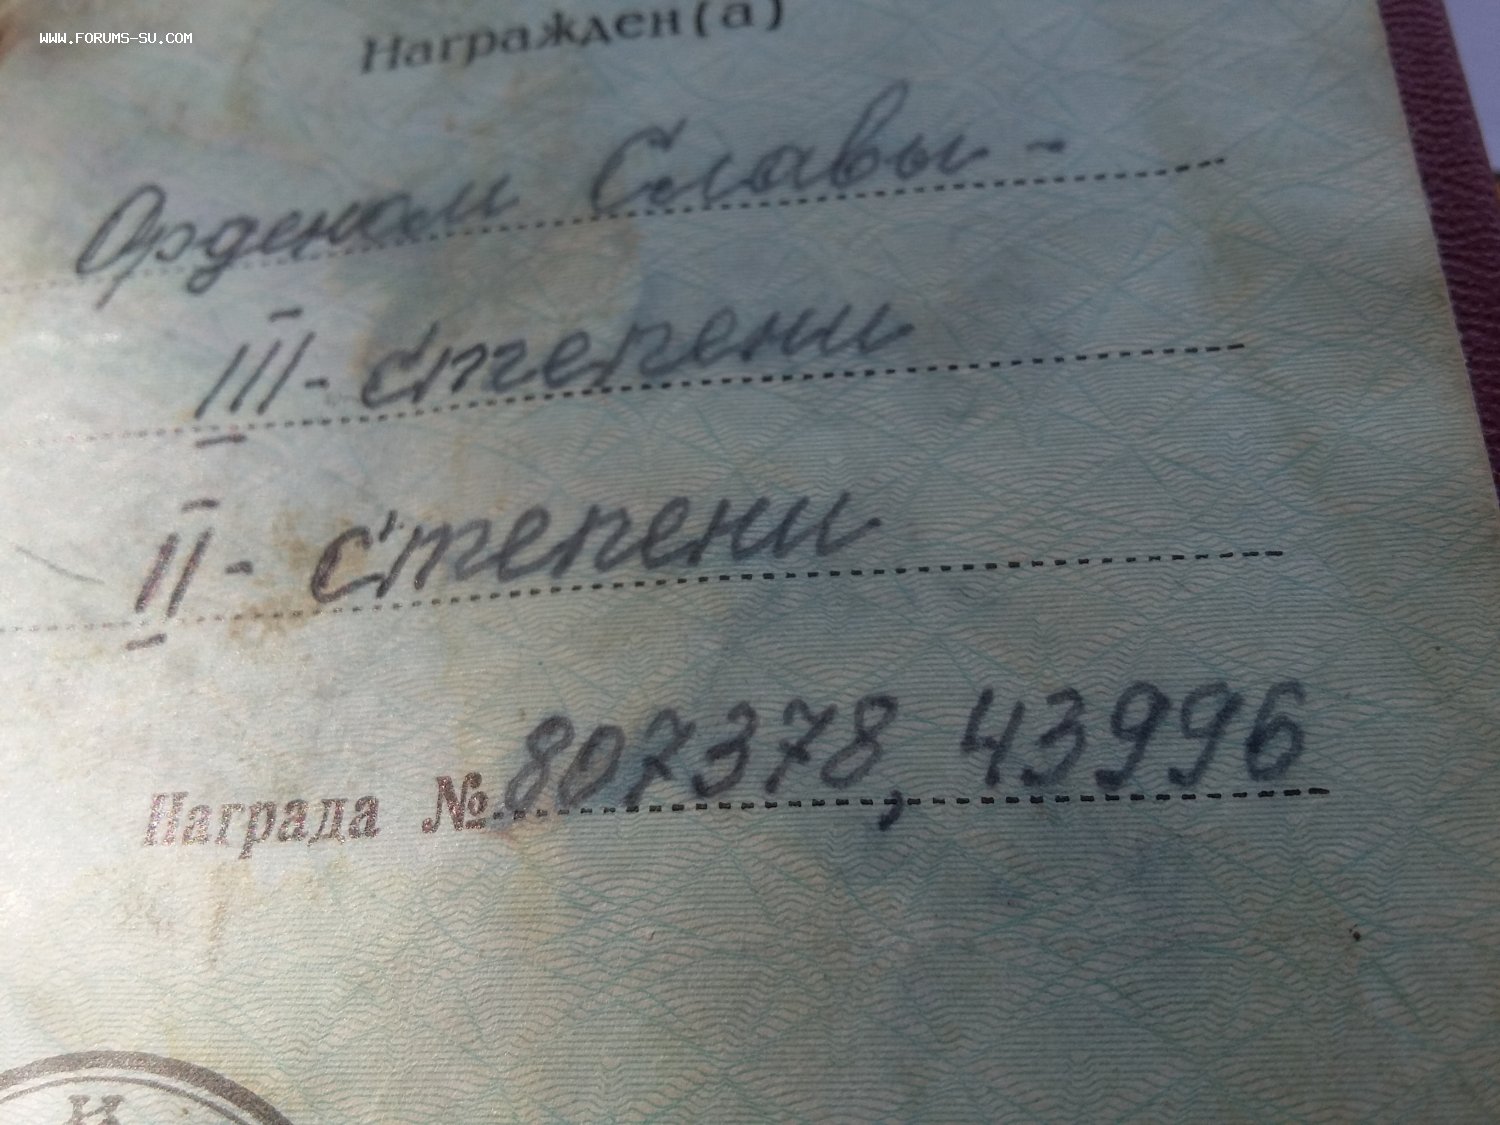 WWW.FORUMS-SU.COM
Награжден(а)
Орденом Славы -
III - степени
II - степени
Награда № 807378, 43996
И